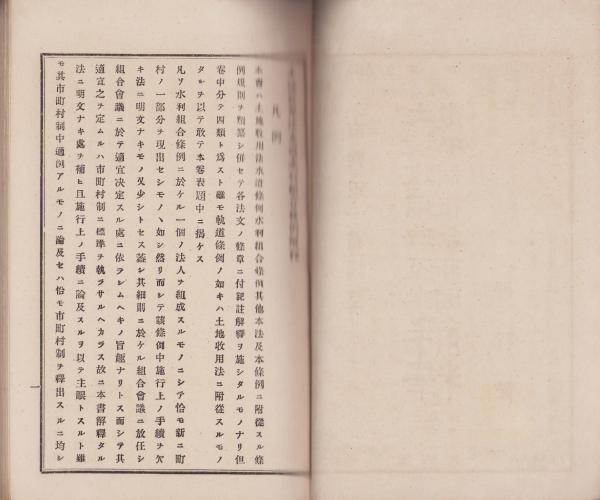 凡例
本書ハ土地收用法水道條例水利組合條例其他本法及本條例ニ附從スル條
例規則ヲ類纂シ併セテ各法文ノ條章ニ付紀註解釋ヲ施シタルモノナリ但
卷中分テ四類ト爲スト雖モ軌道條例ノ如キハ土地收用法ニ附從スルモノ
タルヲ以テ敢テ本卷表題中ニ揭ケス
凡ソ水利組合條例ニ於ケル一個ノ法人ヲ組成スルモノニシテ恰モ新ニ町
村ノ一部分ヲ現出セシモノヽ如シ然リ而シテ該條例中施行上ノ手續ヲ欠
キ法ニ明文ナキモノ又少シトセス蓋シ其細則ニ於ケル組合會議ニ放任シ
組合會議ニ於テ適宜決定スル處ニ依ラシムヘキノ旨趣ナリトス而シテ其
適宜之ヲ定ムルハ市町村制ニ標準ヲ執ラサルヘカラス故ニ本書解釋タル
法ニ明文ナキ處ヲ補ヒ且施行上ノ手續ニ論及スルヲ以テ主眼トスルト雖
モ其市町村制中適例アルモノニ論及セハ恰モ市町村制ヲ釋出スルニ均シ
一